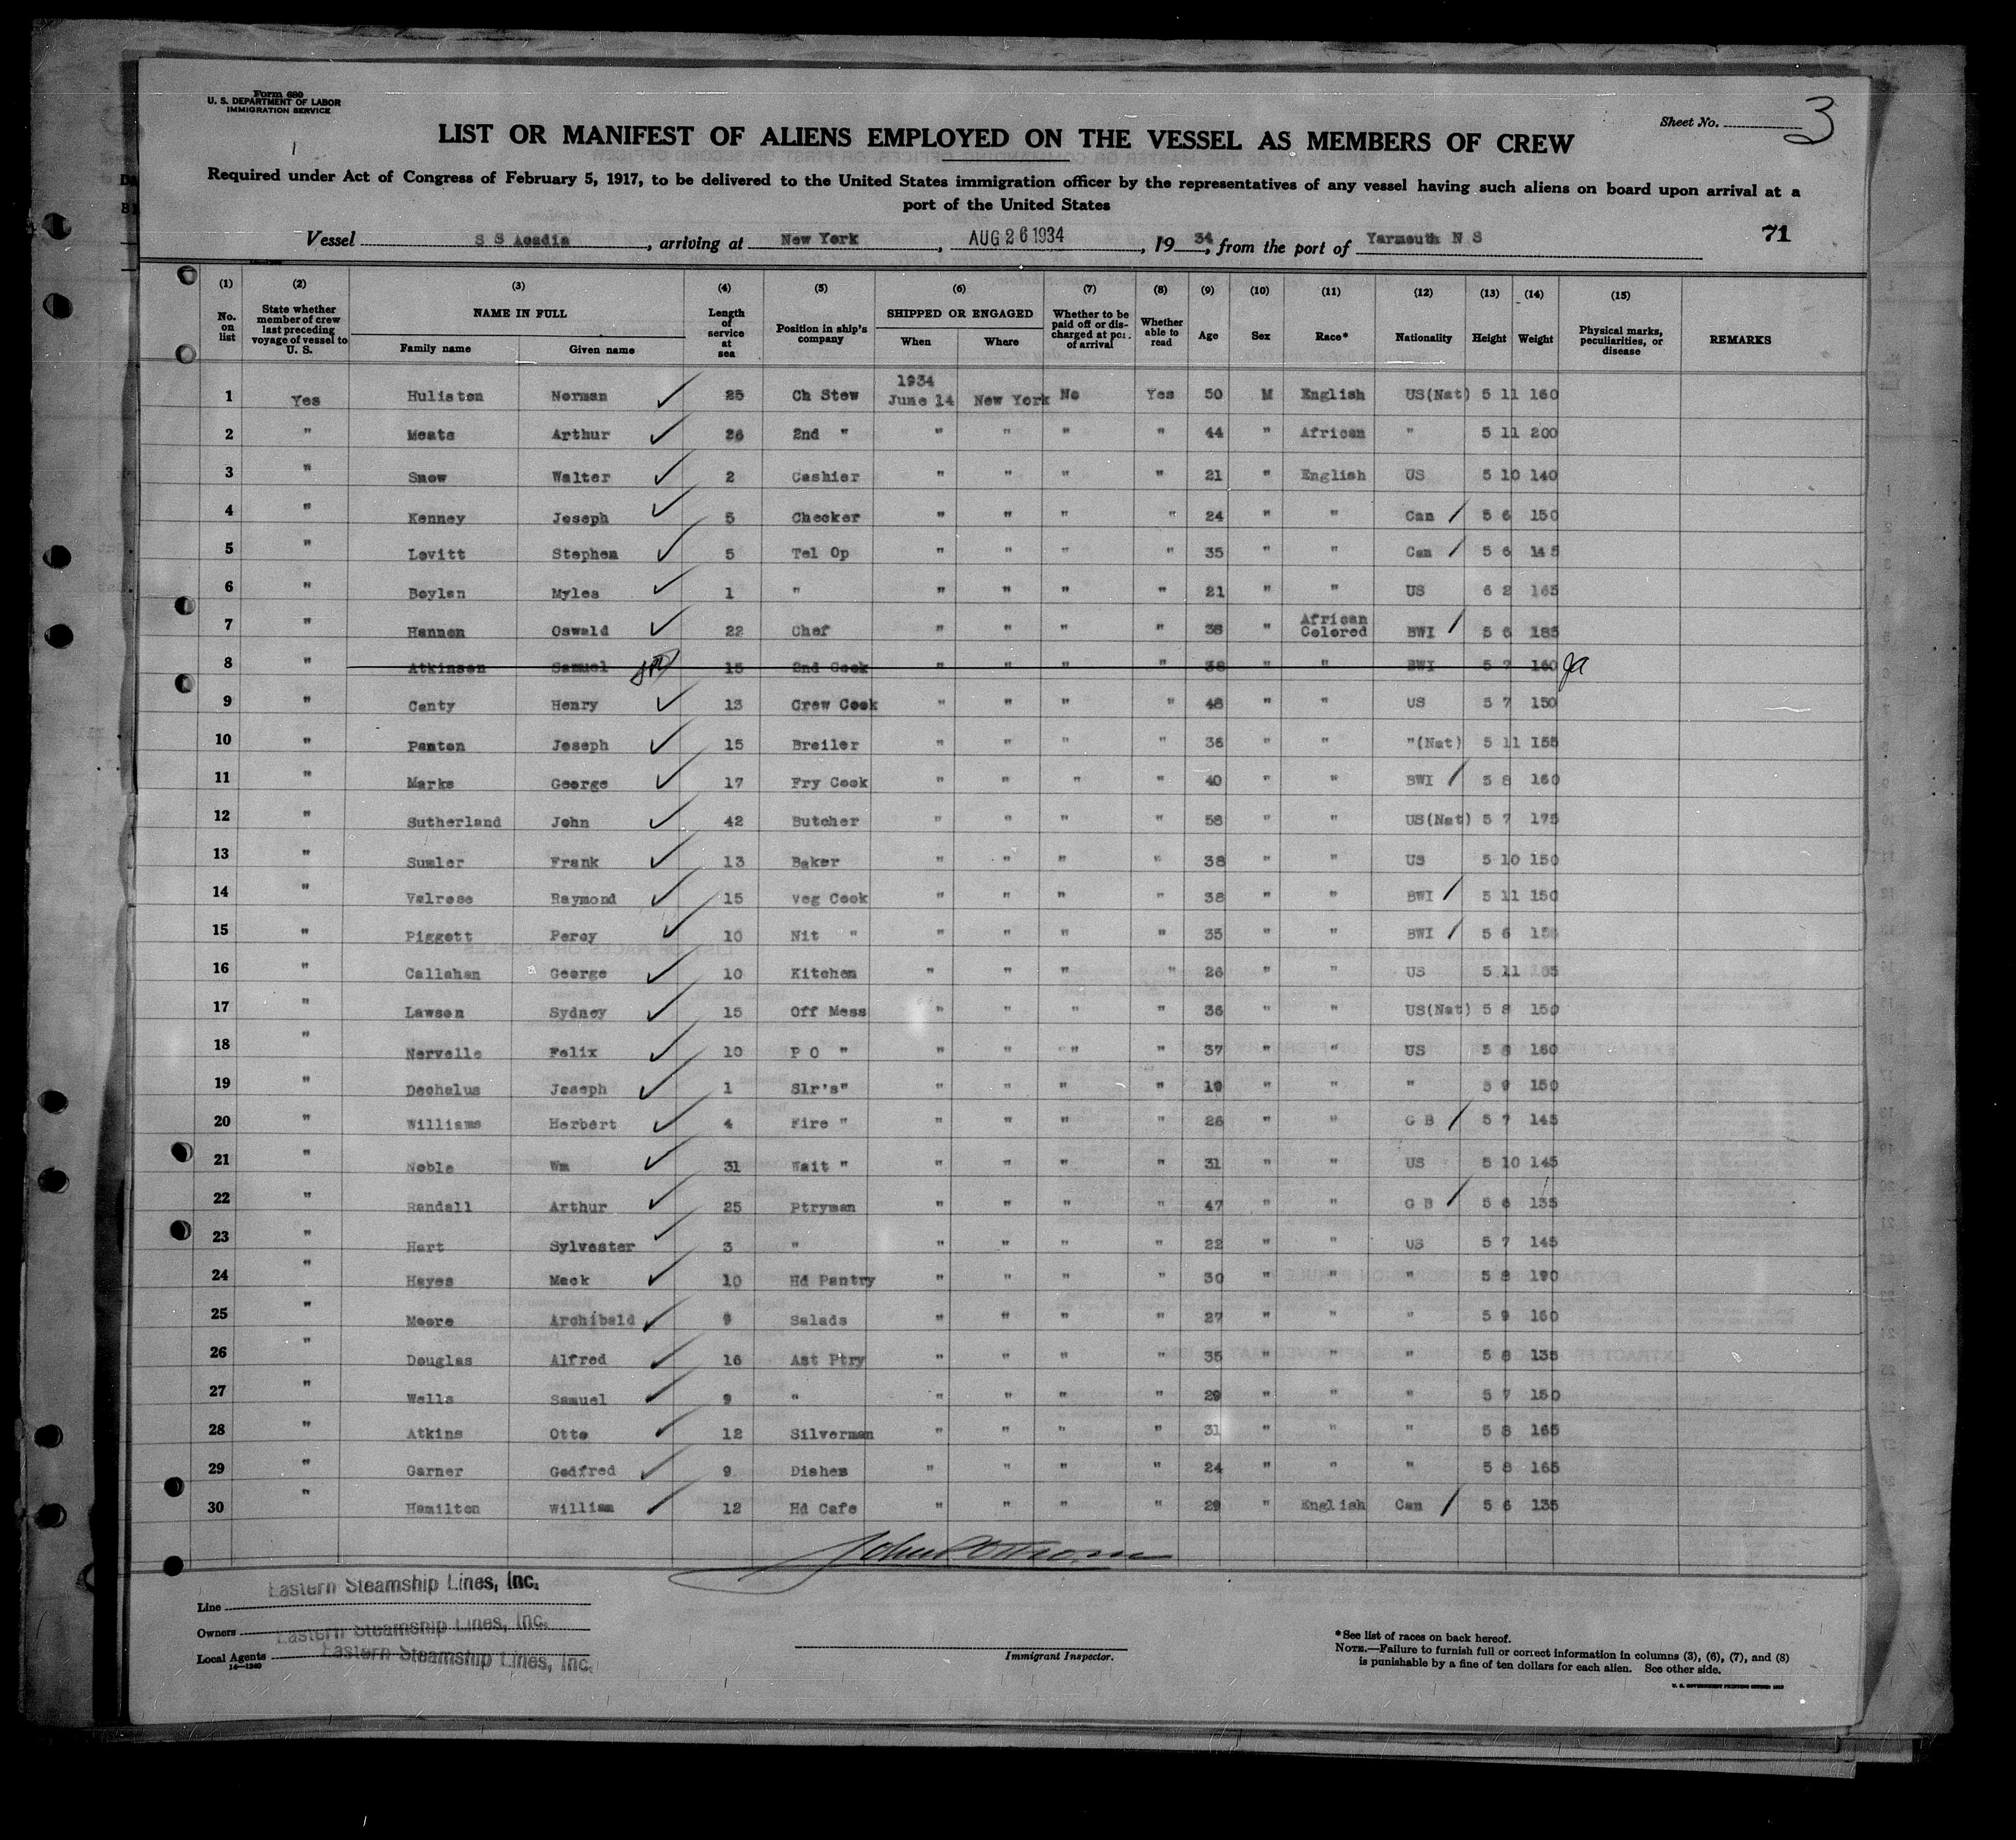 Form 680
U. S. DEPARTMENT OF LABOR
IMMIGRATION SERVICE
Sheet No. 3
LIST OR MANIFEST OF ALIENS EMPLOYED ON THE VESSEL AS MEMBERS OF CREW
Required under Act of Congress of February 5, 1917, to be delivered to the United States immigration officer by the representatives of any vessel having such aliens on board upon arrival at a
port of the United States
Vessel S S Acadia, arriving at New York, AUG 26 1934, 1934, from the port of Yarmouth N S 71
(1) (2) (3) (4) (5) (6) (7) (8) (9) (10) (11) (12) (13) (14) (15)
No. on list State whether member of crew last preceding voyage of vessel to U. S. NAME IN FULL Family name Given name Length of service at sea Position in ship's company SHIPPED OR ENGAGED When Where Whether to be paid off or discharged at port of arrival Whether able to read Age Sex Race* Nationality Height Weight Physical marks, peculiarities, or disease REMARKS
1 Yes Huliston Norman 25 Ch Stew 1934 June 14 New York No Yes 50 M English US(Nat) 5 11 160
2 " Meats Arthur 26 2nd " " " " " 44 " African " 5 11 200
3 " Snow Walter 2 Cashier " " " " 21 " English US 5 10 140
4 " Kenney Joseph 5 Checker " " " " 24 " " Can 5 6 150
5 " Lovitt Stephen 5 Tel Op " " " " 35 " " Can 5 6 145
6 " Boylan Myles 1 " " " " " 21 " " US 6 2 165
7 " Hannen Oswald 22 Chef " " " " 38 " African Colored BWI 5 6 185
8 " Atkinson Samuel 15 2nd Cook " " " " 38 " " BWI 5 7 160
9 " Canty Henry 13 Crew Cook " " " " 48 " " US 5 7 150
10 " Panton Joseph 15 Broiler " " " " 36 " " "(Nat) 5 11 155
11 " Marks George 17 Fry Cook " " " " 40 " " BWI 5 8 160
12 " Sutherland John 42 Butcher " " " " 58 " " US(Nat) 5 7 175
13 " Sumler Frank 13 Baker " " " " 38 " " US 5 10 150
14 " Valrose Raymond 15 Veg Cook " " " " 38 " " BWI 5 11 150
15 " Piggott Percy 10 Nit " " " " " 35 " " BWI 5 6
16 " Callahan George 10 Kitchen " " " " 26 " " US 5 11
17 " Lawson Sydney 15 Off Mess " " " " 36 " " US(Nat) 5 8 150
18 " Nervelle Felix 10 P O " " " " " 37 " " US 5 8 160
19 " Dechelus Joseph 1 Slr's" " " " " 19 " " " 5 9 150
20 " Williams Herbert 4 Fire " " " " " 26 " " G B 5 7 145
21 " Noble Wm 31 Wait " " " " " 31 " " US 5 10 145
22 " Randall Arthur 25 Ptryman " " " " 47 " " G B 5 6 135
23 " Hart Sylvester 3 " " " " " 22 " " US 5 7 145
24 " Hayes Mack 10 Hd Pantry " " " " 30 " " " 5 8 190
25 " Moore Archibald 9 Salads " " " " 27 " " " 5 9 160
26 " Douglas Alfred 16 Ast Ptry " " " " 35 " " " 5 8 135
27 " Wells Samuel 9 " " " " " 29 " " " 5 7 150
28 " Atkins Otto 12 Silverman " " " " 31 " " " 5 8 165
29 " Garner Godfred 9 Dishes " " " " 24 " " " 5 8 165
30 " Hamilton William 12 Hd Cafe " " " " 29 " English Can 5 6 135
Line Eastern Steamship Lines, Inc.
Owners Eastern Steamship Lines, Inc.
Local Agents Eastern Steamship Lines, Inc.
14—1240
Immigrant Inspector.
*See list of races on back hereof.
NOTE.—Failure to furnish full or correct information in columns (3), (6), (7), and (8)
is punishable by a fine of ten dollars for each alien. See other side.